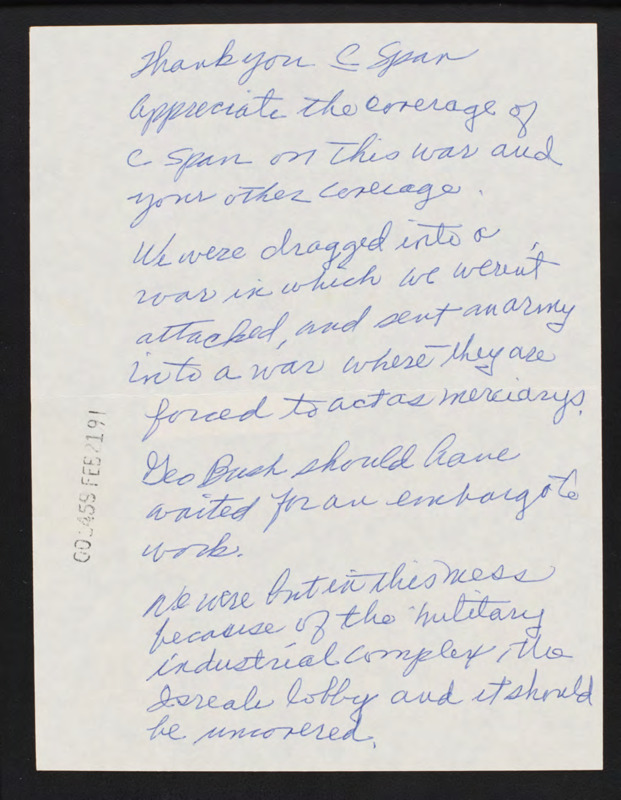 Thank you C Span
Appreciate the coverage of
C Span on this war and
your other coverage.
We were dragged into a
war in which we weren't
attacked, and sent an army
into a war where they are
forced to act as merciarys.
Geo Bush should have
waited for an embargo to
work.
We were put in this mess
because of the military
industrial complex, the
Isreale lobby and it should
be uncovered.
001459 FEB2191